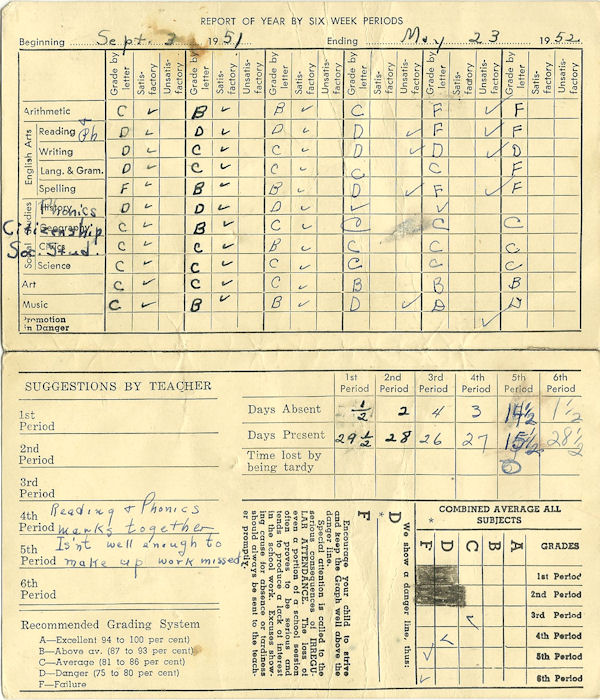 REPORT OF YEAR BY SIX WEEK PERIODS
Beginning Sept. 3 1951 Ending May 23 1952
Grade by letter Satis-factory Unsatis-factory Grade by letter Satis-factory Unsatis-factory Grade by letter Satis-factory Unsatis-factory Grade by letter Satis-factory Unsatis-factory Grade by letter Satis-factory Unsatis-factory Grade by letter Satis-factory Unsatis-factory
Arithmetic C ✓ B ✓ B ✓ C F ✓ F
English Arts
Reading & Ph D ✓ D ✓ D ✓ D ✓ F ✓ F
Writing D ✓ C ✓ C ✓ D ✓ D ✓ D
Lang. & Gram. D ✓ C ✓ C ✓ C C F
Spelling F ✓ B ✓ B ✓ D ✓ F ✓ F
Social Studies
History Phonics D ✓ D ✓ D ✓ ✓ ✓
Geography Citizenship C ✓ B ✓ C ✓ C C C
Civics Soc. Stud. C ✓ C ✓ B ✓ C C C
Science C ✓ C ✓ C ✓ C C C
Art C ✓ C ✓ C ✓ B B B
Music C ✓ B ✓ B ✓ D ✓ D D
Promotion in Danger ✓
SUGGESTIONS BY TEACHER
1st Period
2nd Period
3rd Period
4th Period Reading & Phonics
marks together
5th Period Isn't well enough to
make up work missed
6th Period
Recommended Grading System
A—Excellent 94 to 100 per cent)
B—Above av. (87 to 93 per cent)
C—Average (81 to 86 per cent)
D—Danger (75 to 80 per cent)
F—Failure
1st Period 2nd Period 3rd Period 4th Period 5th Period 6th Period
Days Absent ½ 2 4 3 14½ 1½
Days Present 29½ 28 26 27 15½ 28½
Time lost by being tardy 0
We show a danger line, thus:
D *
F
Encourage your child to strive
and keep the Graph well above the
danger line.
Special attention is called to the
serious consequences of IRREGU-
LAR ATTENDANCE. The loss of
even a portion of a school session
often proves to be serious and
tends to produce a lack of interest
in the school work. Excuses show-
ing cause for absence or tardiness
should always be sent to the teach-
er promptly.
COMBINED AVERAGE ALL SUBJECTS
F D * C B A GRADES
1st Period
2nd Period
3rd Period ✓
4th Period ✓
5th Period ✓
6th Period ✓